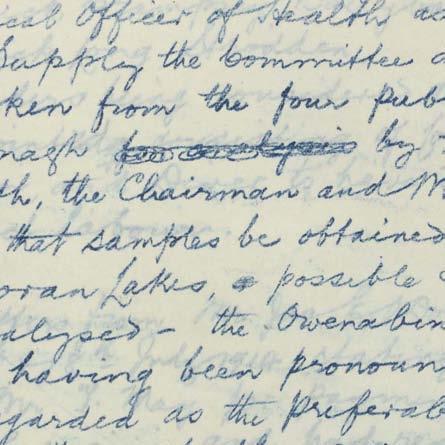 ical Officer of Health a
Supply the Committee
ken from the four Pub
nagh for analysis by
th, the Chairman and M
that samples be obtained
oran Lakes, a possible
alysed - the Owenabin
having been pronoun
egarded as the Preferab